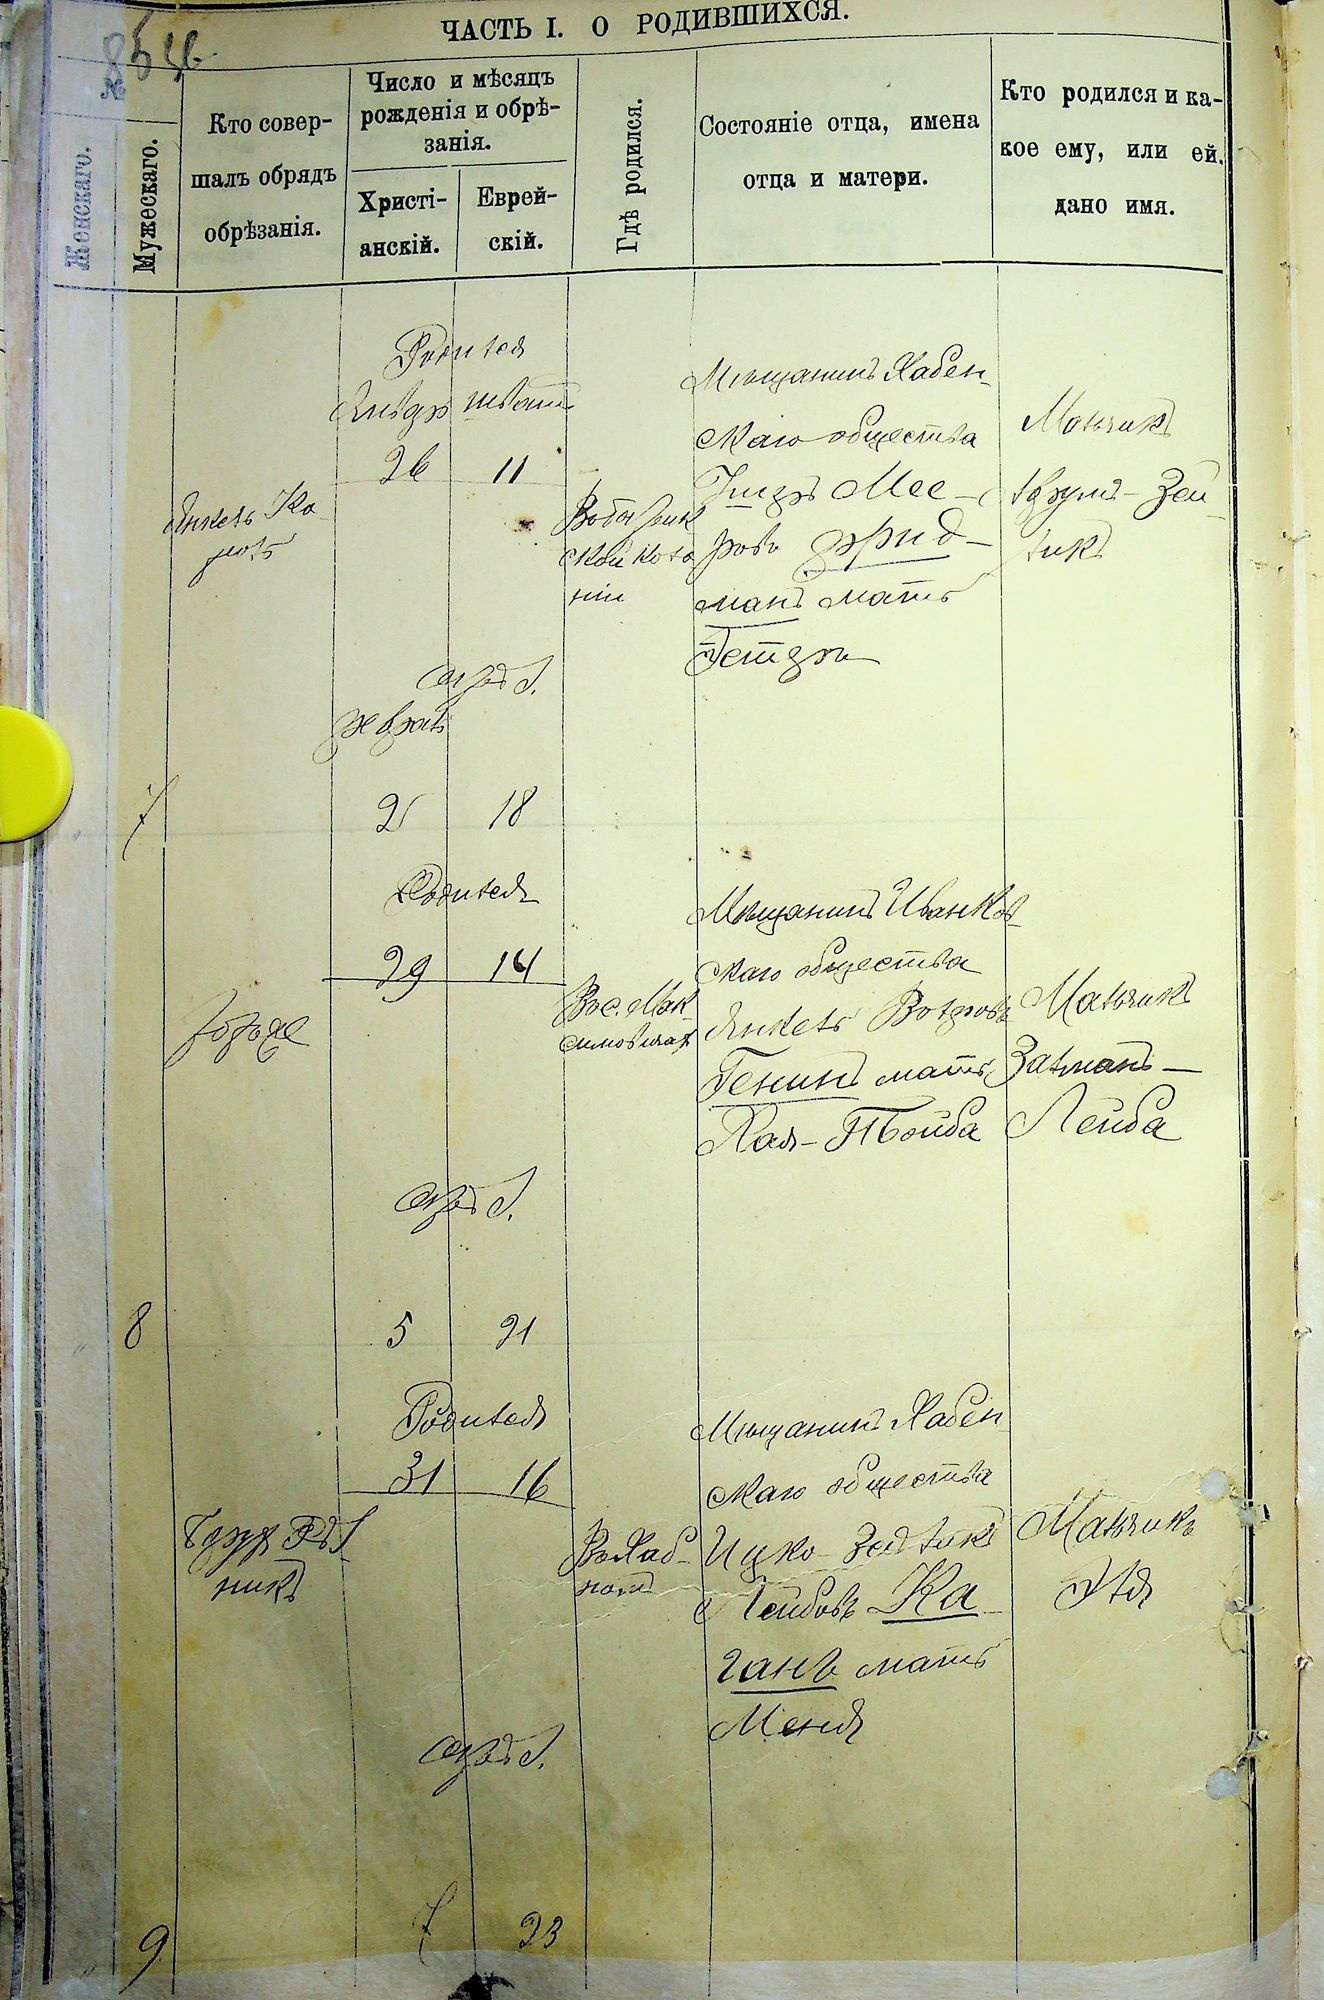 ЧАСТЬ I. О РОДИВШИХСЯ.
№
Женскаго.
Мужескаго.
Кто совер-
шалъ обрядъ
обрѣзанія.
Число и мѣсяцъ
рожденія и обрѣ-
занія.
Христі-
анскій.
Еврей-
скій.
Гдѣ родился.
Состояніе отца, имена
отца и матери.
Кто родился и ка-
кое ему, или ей.
дано имя.
7
Янкель Ко-
Родился
Январ Шват
26 11
обрѣз.
Феврал
2 18
ской коло
ніи
Мѣщанинъ Хабен-
скаго общества
Мее-
ровъ Фрид-
манъ мать
Мальчикъ
Сруль-Зей-
ликъ
8
Родился
29 14
обрѣз.
5 21
Въ с. Мак-
симовичах
Мѣщанинъ Иванков-
скаго общества
Янкель Волфовъ
Генинъ мать
Хая-Тойба
Мальчикъ
Залманъ-
Лейба
9
Родился
31 16
обрѣз.
7 23
Въ Хаб-
номъ
Мѣщанинъ Хабен-
скаго общества
Ицко-Зейликъ
Лейбовъ Ка-
ганъ мать
Меня
Мальчикъ